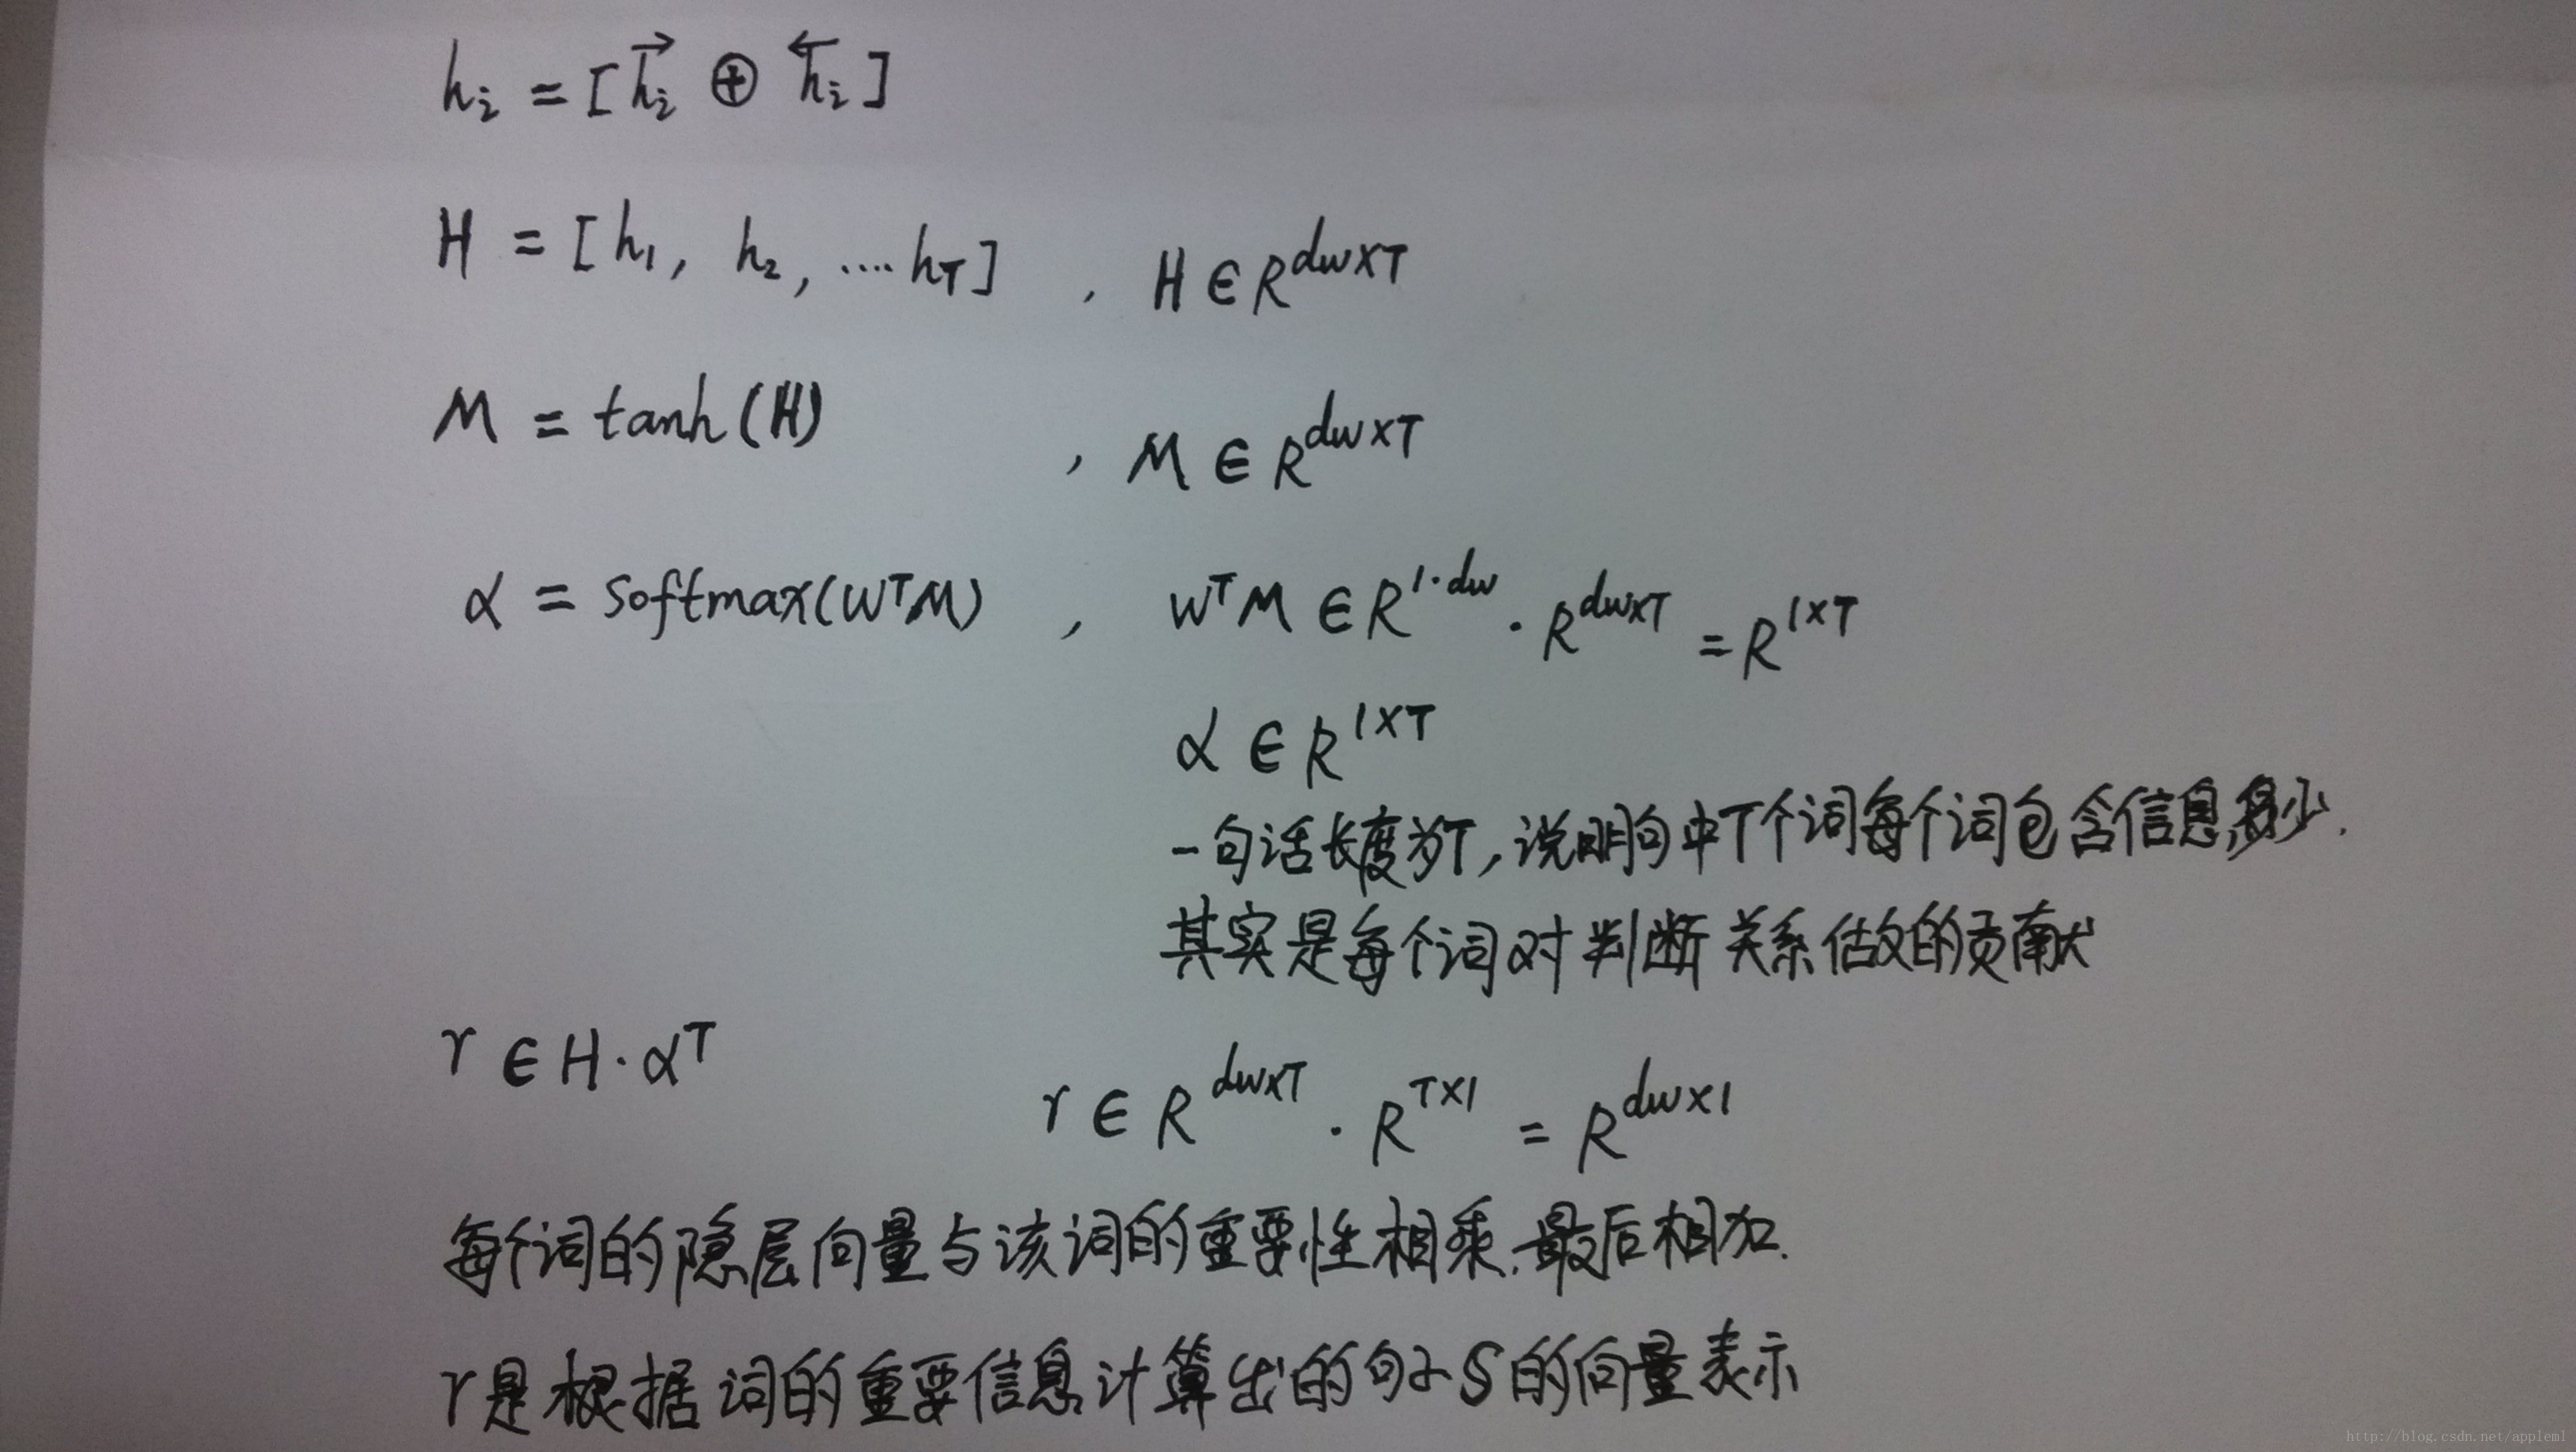 hᵢ = [h⃗ᵢ ⊕ h⃖ᵢ]
H = [h₁, h₂, ....h_T] , H ∈ R^{dw×T}
M = tanh(H) , M ∈ R^{dw×T}
α = softmax(WᵀM) , WᵀM ∈ R^{1·dw} · R^{dw×T} = R^{1×T}
α ∈ R^{1×T}
一句话长度为T,说明句中T个词每个词包含信息多少.
其实是每个词对判断关系做的贡献
r ∈ H·αᵀ
r ∈ R^{dw×T} · R^{T×1} = R^{dw×1}
每个词的隐层向量与该词的重要性相乘.最后相加.
r是根据词的重要信息计算出的句子S的向量表示
http://blog.csdn.net/appleml